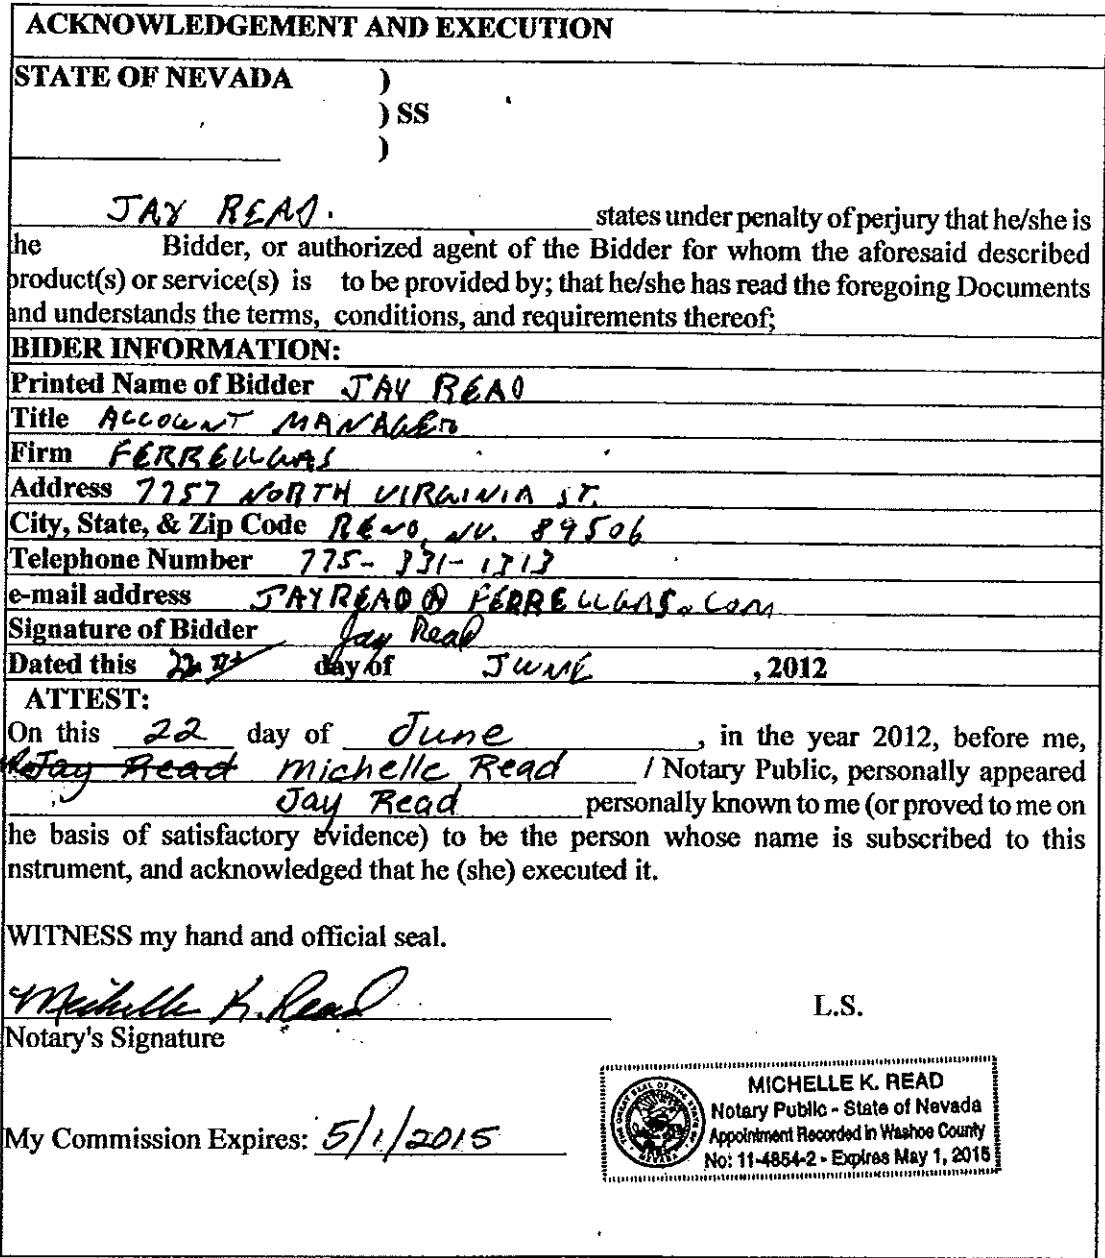 ACKNOWLEDGEMENT AND EXECUTION
STATE OF NEVADA )
) SS
)
JAY READ. states under penalty of perjury that he/she is
he Bidder, or authorized agent of the Bidder for whom the aforesaid described
product(s) or service(s) is to be provided by; that he/she has read the foregoing Documents
and understands the terms, conditions, and requirements thereof;
BIDER INFORMATION:
Printed Name of Bidder JAY READ
Title ACCOUNT MANAGER
Firm FERRELLGAS
Address 7757 NORTH VIRGINIA ST.
City, State, & Zip Code RENO, NV. 89506
Telephone Number 775-331-1313
e-mail address JAYREAD@FERRELLGAS.COM
Signature of Bidder Jay Read
Dated this 22 day of JUNE , 2012
ATTEST:
On this 22 day of June , in the year 2012, before me,
Jay Read Michelle Read / Notary Public, personally appeared
Jay Read personally known to me (or proved to me on
he basis of satisfactory evidence) to be the person whose name is subscribed to this
nstrument, and acknowledged that he (she) executed it.
WITNESS my hand and official seal.
Michelle K. Read L.S.
Notary's Signature
MICHELLE K. READ
Notary Public - State of Nevada
Appointment Recorded in Washoe County
No: 11-4854-2 - Expires May 1, 2015
My Commission Expires: 5/1/2015